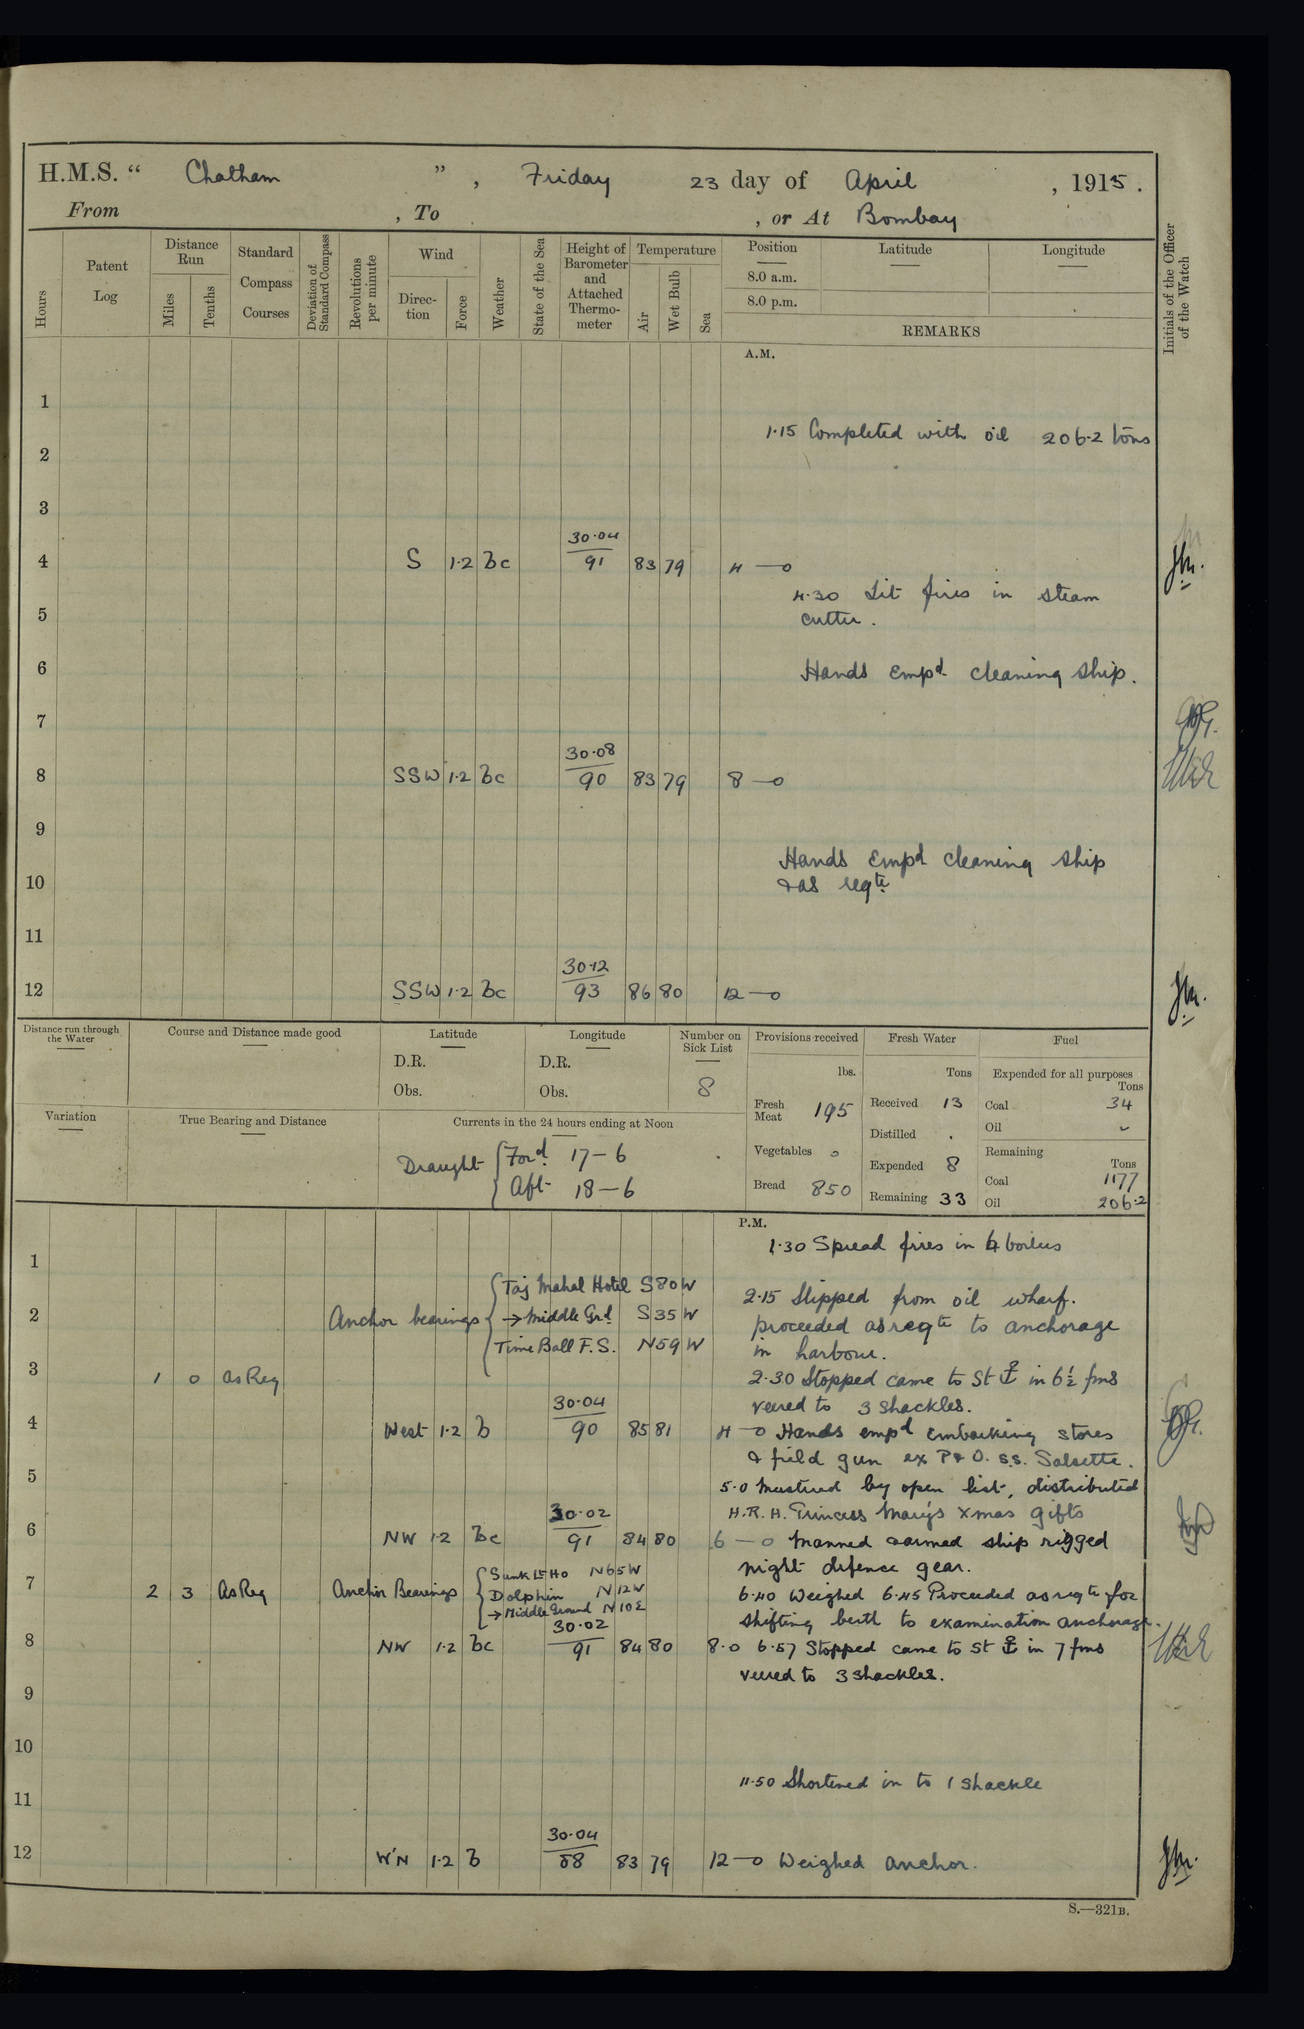 H.M.S. “ Chatham ” , Friday 23 day of April , 1915 .
From , To , or At Bombay
Hours
Patent Log
Distance Run
Miles
Tenths
Standard Compass Courses
Deviation of Standard Compass
Revolutions per minute
Wind
Direc- tion
Force
Weather
State of the Sea
Height of Barometer and Attached Thermo- meter
Temperature
Air
Wet Bulb
Sea
Position
8.0 a.m.
8.0 p.m.
Latitude
Longitude
REMARKS
Initials of the Officer of the Watch
A.M.
1
1.15 Completed with oil 206.2 tons
2
3
30.04
4 S 1.2 bc 91 83 79 4 — 0
4.30 Lit fires in steam
5 cutter.
6 Hands empd cleaning ship.
7
30.08
8 SSW 1.2 bc 90 83 79 8 — 0
9
Hands empd cleaning ship
10 & as reqte
11
30.12
12 SSW 1.2 bc 93 86 80 12 — 0
Distance run through the Water
Course and Distance made good
Latitude
D.R.
Obs.
Longitude
D.R.
Obs.
Number on Sick List
8
Provisions received
lbs.
Fresh Meat 195
Vegetables 0
Bread 850
Fresh Water
Tons
Received 13
Distilled .
Expended 8
Remaining 33
Fuel
Expended for all purposes
Tons
Coal 34
Oil
Remaining
Tons
Coal 1177
Oil 206.2
Variation
True Bearing and Distance
Currents in the 24 hours ending at Noon
Draught { Ford. 17 – 6
Aft 18 – 6
P.M.
1.30 Spread fires in 4 boilers
1
Taj Mahal Hotel S 80 W
2.15 Slipped from oil wharf.
2 Anchor bearings { → Middle Grd. S 35 W
proceeded as reqte to anchorage
Time Ball F.S. N 59 W
in harbour.
3 1 0 as Req
2.30 Stopped came to St ⚓ in 6½ fms
30.04
veered to 3 shackles.
4 West 1.2 b 90 85 81 4 — 0 Hands empd embarking stores
& field gun ex P & O. s.s. Salsette.
5 5.0 Mustered by open list, distributed
30.02
H.R.H. Princess Mary's Xmas gifts
6 NW 1.2 bc 91 84 80 6 — 0 Manned & armed ship rigged
night defence gear.
Sunk Lt Ho N 65 W
7 2 3 As Req Anchor Bearings { Dolphin N 12 W
6.40 Weighed 6.45 Proceeded as reqte for
→ Middle Ground N 10 E
shifting berth to examination anchorage.
30.02
8 NW 1.2 bc 91 84 80 8.0 6.57 Stopped came to St ⚓ in 7 fms
veered to 3 shackles.
9
10
11.50 Shortened in to 1 shackle
11
30.04
12 W'N 1.2 b 88 83 79 12 — 0 Weighed anchor.
S.—321B.